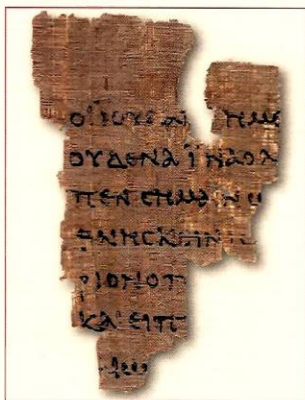 ΟΙ ΙΟΥΔΑΙ ΗΜΕ
ΟΥΔΕΝΑ ΙΝΑ Ο Λ
ΠΕΝ CΗΜΑΙΝΩ
ΘΝΗCΚΕΙΝ
ΡΙΟΝ Ο Π
ΚΑΙ ΕΙΠ
ΑΙΩ